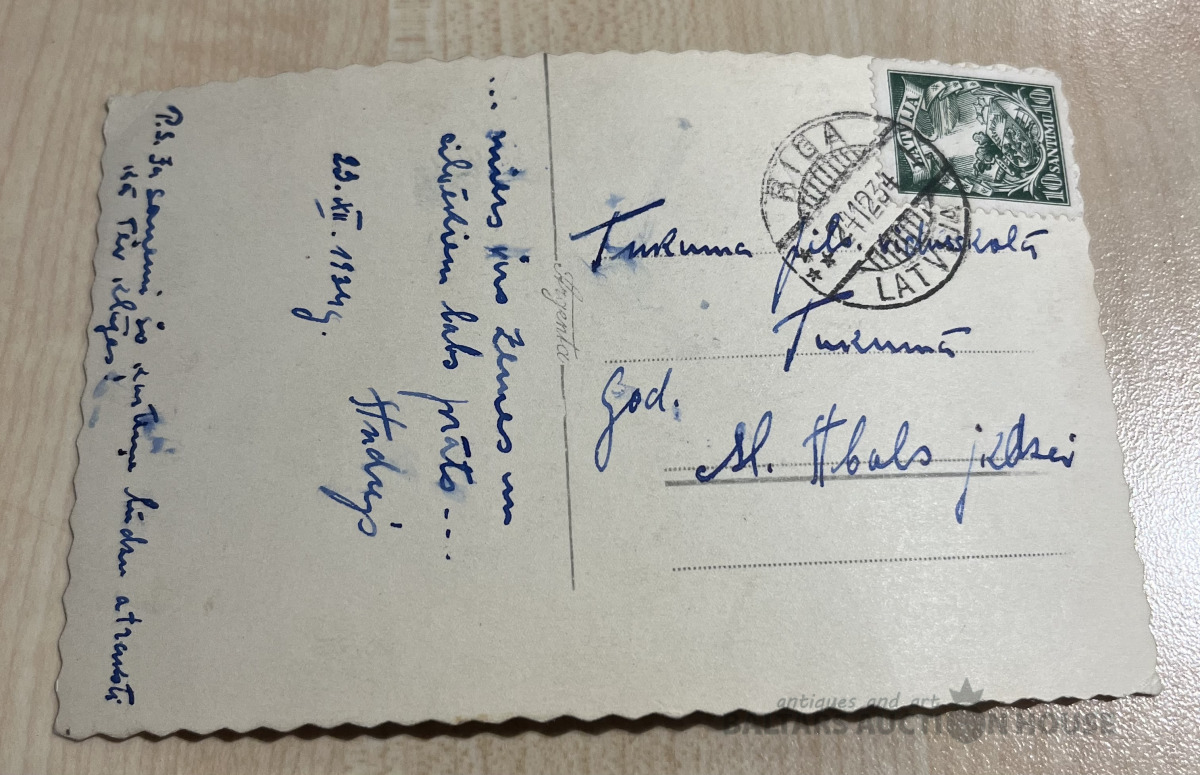 ... miers virs Zemes un
cilvēkiem labs prāts ...
23. XII. 1934 g.
Andrejs
P.S. Ja saņemi šo kartiņu lūdzu atraksti
kā Tev klājas!
Argenta
LATVIJA
10 SANTIMU 10
RĪGA
24 12 34
LATVIJA
Tukuma pils. vidusskolā
Tukumā
God.
Al. Ābols jkdzei
antiques and art
BALTARS AUCTION HOUSE